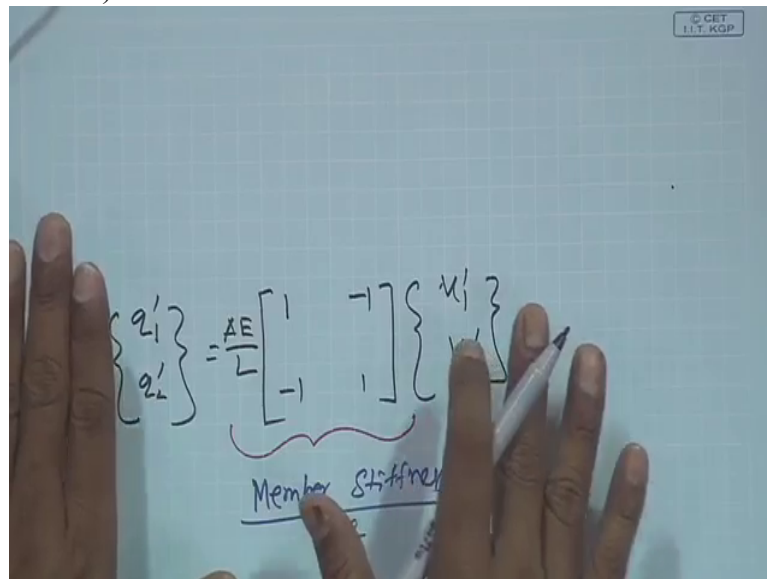 © CET
I.I.T. KGP
{q₁' q₂'} = AE/L [1 -1 -1 1] {u₁'
Member Stiffne